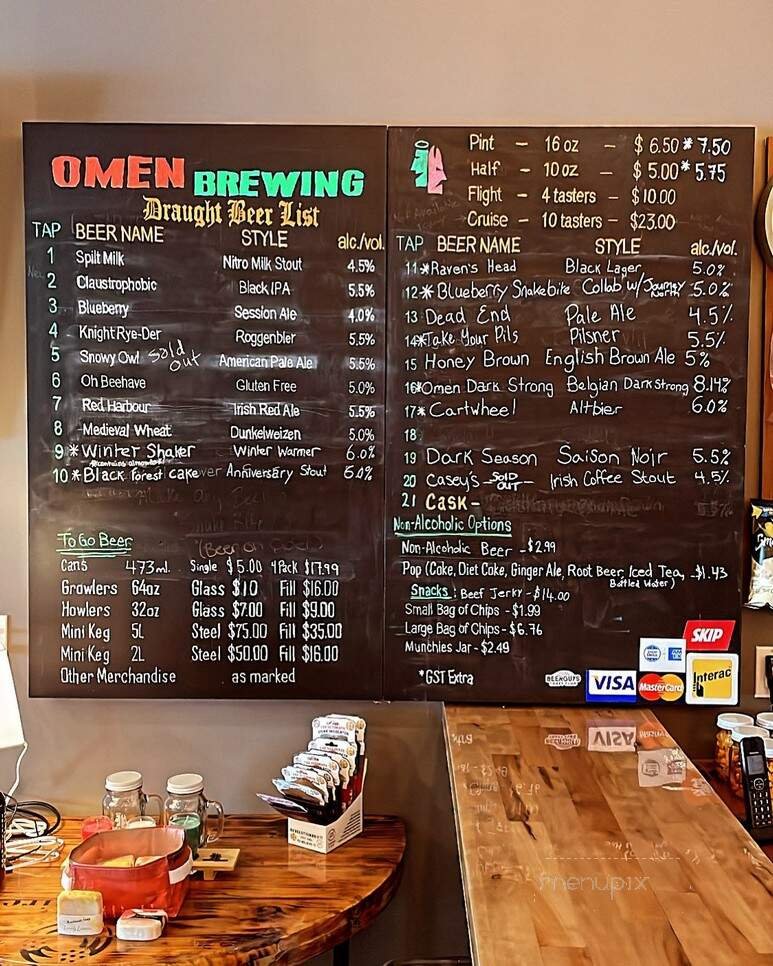 OMEN BREWING
Draught Beer List
TAP BEER NAME STYLE alc./vol.
1 Spilt Milk Nitro Milk Stout 4.5%
2 Claustrophobic Black IPA 5.5%
3 Blueberry Session Ale 4.0%
4 Knight Rye-Der Roggenbier 5.5%
5 Snowy Owl Sold Out American Pale Ale 5.5%
6 Oh Beehave Gluten Free 5.0%
7 Red Harbour Irish Red Ale 5.5%
8 Medieval Wheat Dunkelweizen 5.0%
9 * Winter Shaker Winter Warmer 6.0%
10 * Black Forest Cake over Anniversary Stout 5.0%
To Go Beer
Cans 473ml. Single $5.00 4Pack $17.99
Growlers 64oz Glass $10 Fill $16.00
Howlers 32oz Glass $7.00 Fill $9.00
Mini Keg 5L Steel $75.00 Fill $35.00
Mini Keg 2L Steel $50.00 Fill $16.00
Other Merchandise as marked
Pint - 16 oz - $ 6.50 * 7.50
Half - 10 oz - $ 5.00 * 5.75
Flight - 4 tasters - $10.00
Cruise - 10 tasters - $23.00
TAP BEER NAME STYLE alc./vol.
11 * Raven's Head Black Lager 5.0%
12 * Blueberry Snakebite Collab w/ Journey North 5.0%
13 Dead End Pale Ale 4.5%
14 * Take Your Pils Pilsner 5.5%
15 Honey Brown English Brown Ale 5%
16 * Omen Dark Strong Belgian Dark Strong 8.14%
17 * Cartwheel Altbier 6.0%
18
19 Dark Season Saison Noir 5.5%
20 Casey's SOLD OUT Irish Coffee Stout 4.5%
21 Cask -
Non-Alcoholic Options
Non-Alcoholic Beer - $2.99
Pop (Coke, Diet Coke, Ginger Ale, Root Beer, Iced Tea, - $1.43
Bottled Water)
Snacks: Beef Jerky - $14.00
Small Bag of Chips - $1.99
Large Bag of Chips - $6.76
Munchies Jar - $2.49
*GST Extra
SKIP
BEERGUYS
VISA
MasterCard
Interac
menupix